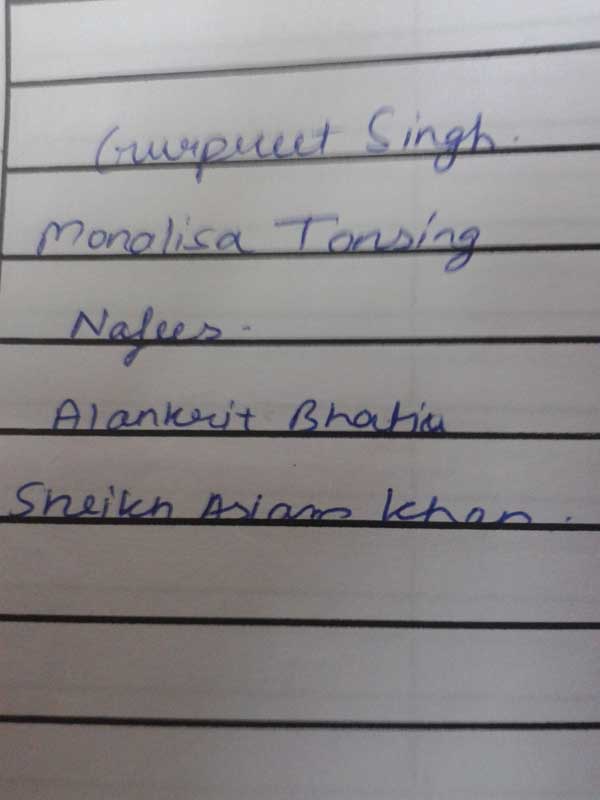 Gurpreet Singh.
Monalisa Tonsing
Nafees.
Alankrit Bhatia
Sheikh Aslam Khan.